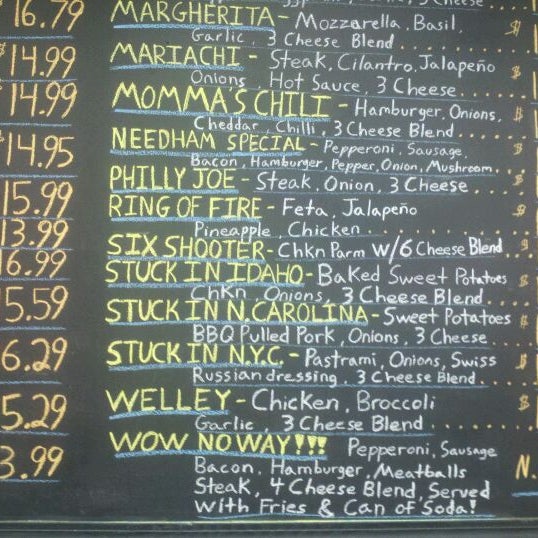 16.79
MARGHERITA - Mozzarella, Basil, $
Garlic, 3 Cheese Blend....
$14.99
MARIACHI - Steak, Cilantro, Jalapeño $
Onions, Hot Sauce, 3 Cheese....
$14.99
MOMMA'S CHILI - Hamburger, Onions, $
Cheddar, Chilli, 3 Cheese Blend....
$14.95
NEEDHAM SPECIAL - Pepperoni, Sausage,
Bacon, Hamburger, Pepper, Onion, Mushroom.... $
PHILLY JOE - Steak, Onion, 3 Cheese.... $
15.99
RING OF FIRE - Feta, Jalapeño $
Pineapple, Chicken....
13.99
SIX SHOOTER - Chkn Parm W/6 Cheese Blend.. $
16.99
STUCK IN IDAHO - Baked Sweet Potatoes $
Chkn, Onions, 3 Cheese Blend....
5.59
STUCK IN N.CAROLINA - Sweet Potatoes $
BBQ Pulled Pork, Onions, 3 Cheese....
6.29
STUCK IN N.Y.C. - Pastrami, Onions, Swiss $
Russian dressing, 3 Cheese Blend....
5.29
WELLEY - Chicken, Broccoli $
Garlic, 3 Cheese Blend....
3.99
WOW NO WAY!!! Pepperoni, Sausage
Bacon, Hamburger, Meatballs N.
Steak, 4 Cheese Blend, Served
With Fries & Can of Soda!